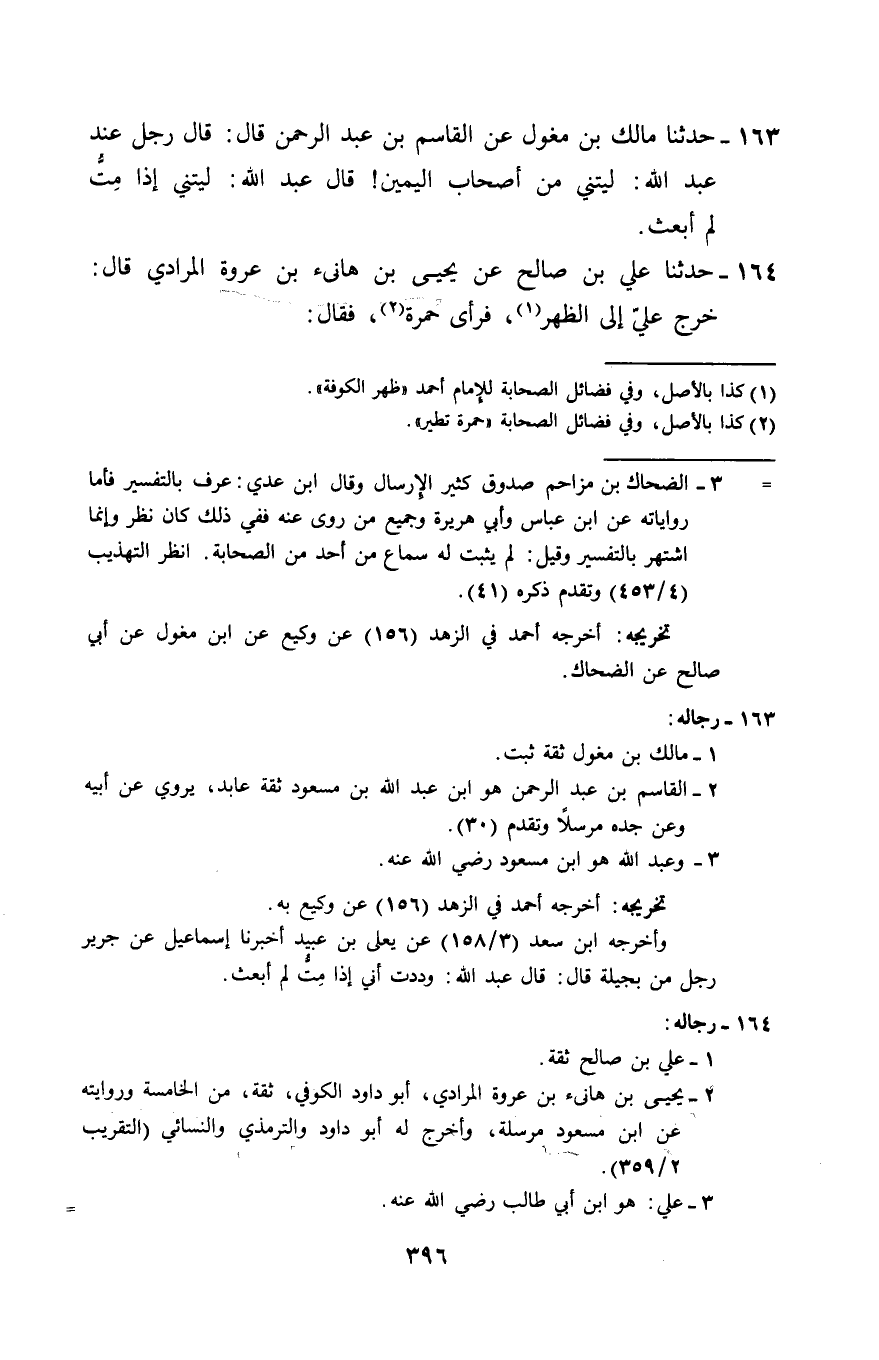 ١٦٣ - حدثنا مالك بن مغول عن القاسم بن عبد الرحمن قال: قال رجل عند
عبد الله: ليتني من أصحاب اليمين! قال عبد الله: ليتني إذا مِتُّ
لم أبعث.
١٦٤ - حدثنا علي بن صالح عن يحيى بن هانىء بن عروة المرادي قال:
خرج عليّ إلى الظهر(١)، فرأى حمرة(٢)، فقال:
(١) كذا بالأصل، وفي فضائل الصحابة للإمام أحمد «ظهر الكوفة».
(٢) كذا بالأصل، وفي فضائل الصحابة «حمرة تطير».
= ٣ - الضحاك بن مزاحم صدوق كثير الإرسال وقال ابن عدي: عرف بالتفسير فأما
رواياته عن ابن عباس وأبي هريرة وجميع من روى عنه ففي ذلك كان نظر وإنما
اشتهر بالتفسير وقيل: لم يثبت له سماع من أحد من الصحابة. انظر التهذيب
(٤٥٣/٤) وتقدم ذكره (٤١).
تخريجه: أخرجه أحمد في الزهد (١٥٦) عن وكيع عن ابن مغول عن أبي
صالح عن الضحاك.
١٦٣ - رجاله:
١ - مالك بن مغول ثقة ثبت.
٢ - القاسم بن عبد الرحمن هو ابن عبد الله بن مسعود ثقة عابد، يروي عن أبيه
وعن جده مرسلاً وتقدم (٣٠).
٣ - وعبد الله هو ابن مسعود رضي الله عنه.
تخريجه: أخرجه أحمد في الزهد (١٥٦) عن وكيع به.
وأخرجه ابن سعد (١٥٨/٣) عن يعلى بن عبيد أخبرنا إسماعيل عن جرير
رجل من بجيلة قال: قال عبد الله: وددت أني إذا مِتُّ لم أبعث.
١٦٤ - رجاله:
١ - علي بن صالح ثقة.
٢ - يحيى بن هانىء بن عروة المرادي، أبو داود الكوفي، ثقة، من الخامسة وروايته
عن ابن مسعود مرسلة، وأخرج له أبو داود والترمذي والنسائي (التقريب
٣٥٩/٢).
٣ - علي: هو ابن أبي طالب رضي الله عنه.
=
٣٩٦